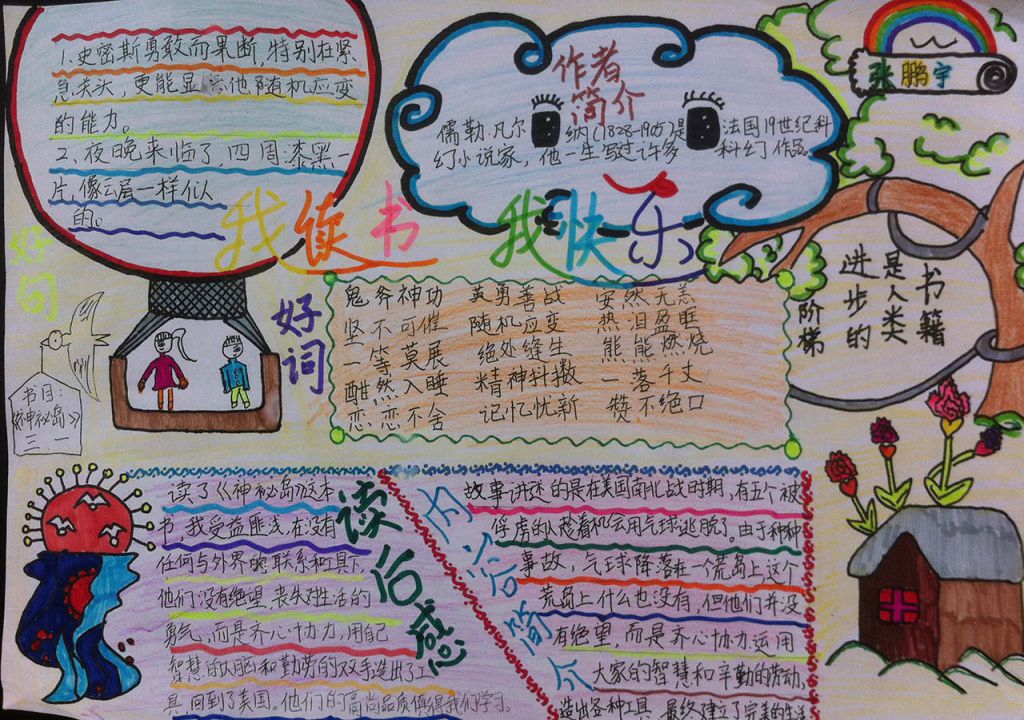 1.史密斯勇敢而果断,特别在紧
急关头,更能显示他随机应变
的能力。
2、夜晚来临了,四周漆黑一
片,像云层一样似
的。
好句
作者
简介
儒勒·凡尔纳(1828-1905)是法国19世纪科
幻小说家,他一生写过许多科幻作品。
张鹏宇
我读书 我快乐
书籍
是人类
进步的
阶梯
好词
鬼斧神功 英勇善战 安然无恙
坚不可催 随机应变 热泪盈眶
一筹莫展 绝处缝生 熊熊燃烧
酣然入睡 精神抖擞 一落千丈
恋恋不舍 记忆忧新 赞不绝口
书目:
《神秘岛》
三一
读后感
读了《神秘岛》这本
书,我受益匪浅,在没有
任何与外界的联系和工具下,
他们没有绝望,丧失对生活的
勇气,而是齐心协力,用自己
智慧的大脑和勤劳的双手造出了工
具,回到了美国。他们的高尚品质值得我们学习。
内容简介
故事讲述的是在美国南北战时期,有五个被
俘虏的人趁着机会用气球逃脱了。由于种种
事故,气球降落在一个荒岛上,这个
荒岛上什么也没有,但他们并没
有绝望,而是齐心协力,运用
大家的智慧和辛勤的劳动,
造出各种工具,最终建立了完美的生活